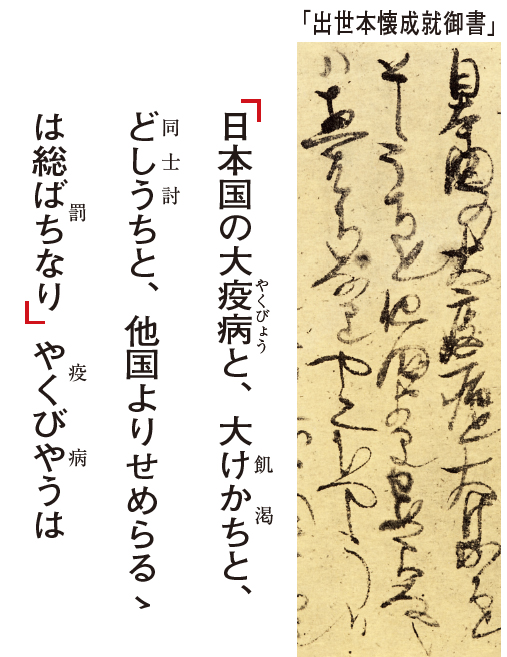 「出世本懐成就御書」
「日本国の大疫病と、大けかちと、
やくびょう
飢渇
どしうちと、他国よりせめらるゝ
同士討
は総ばちなり」やくびやうは
罰
疫病